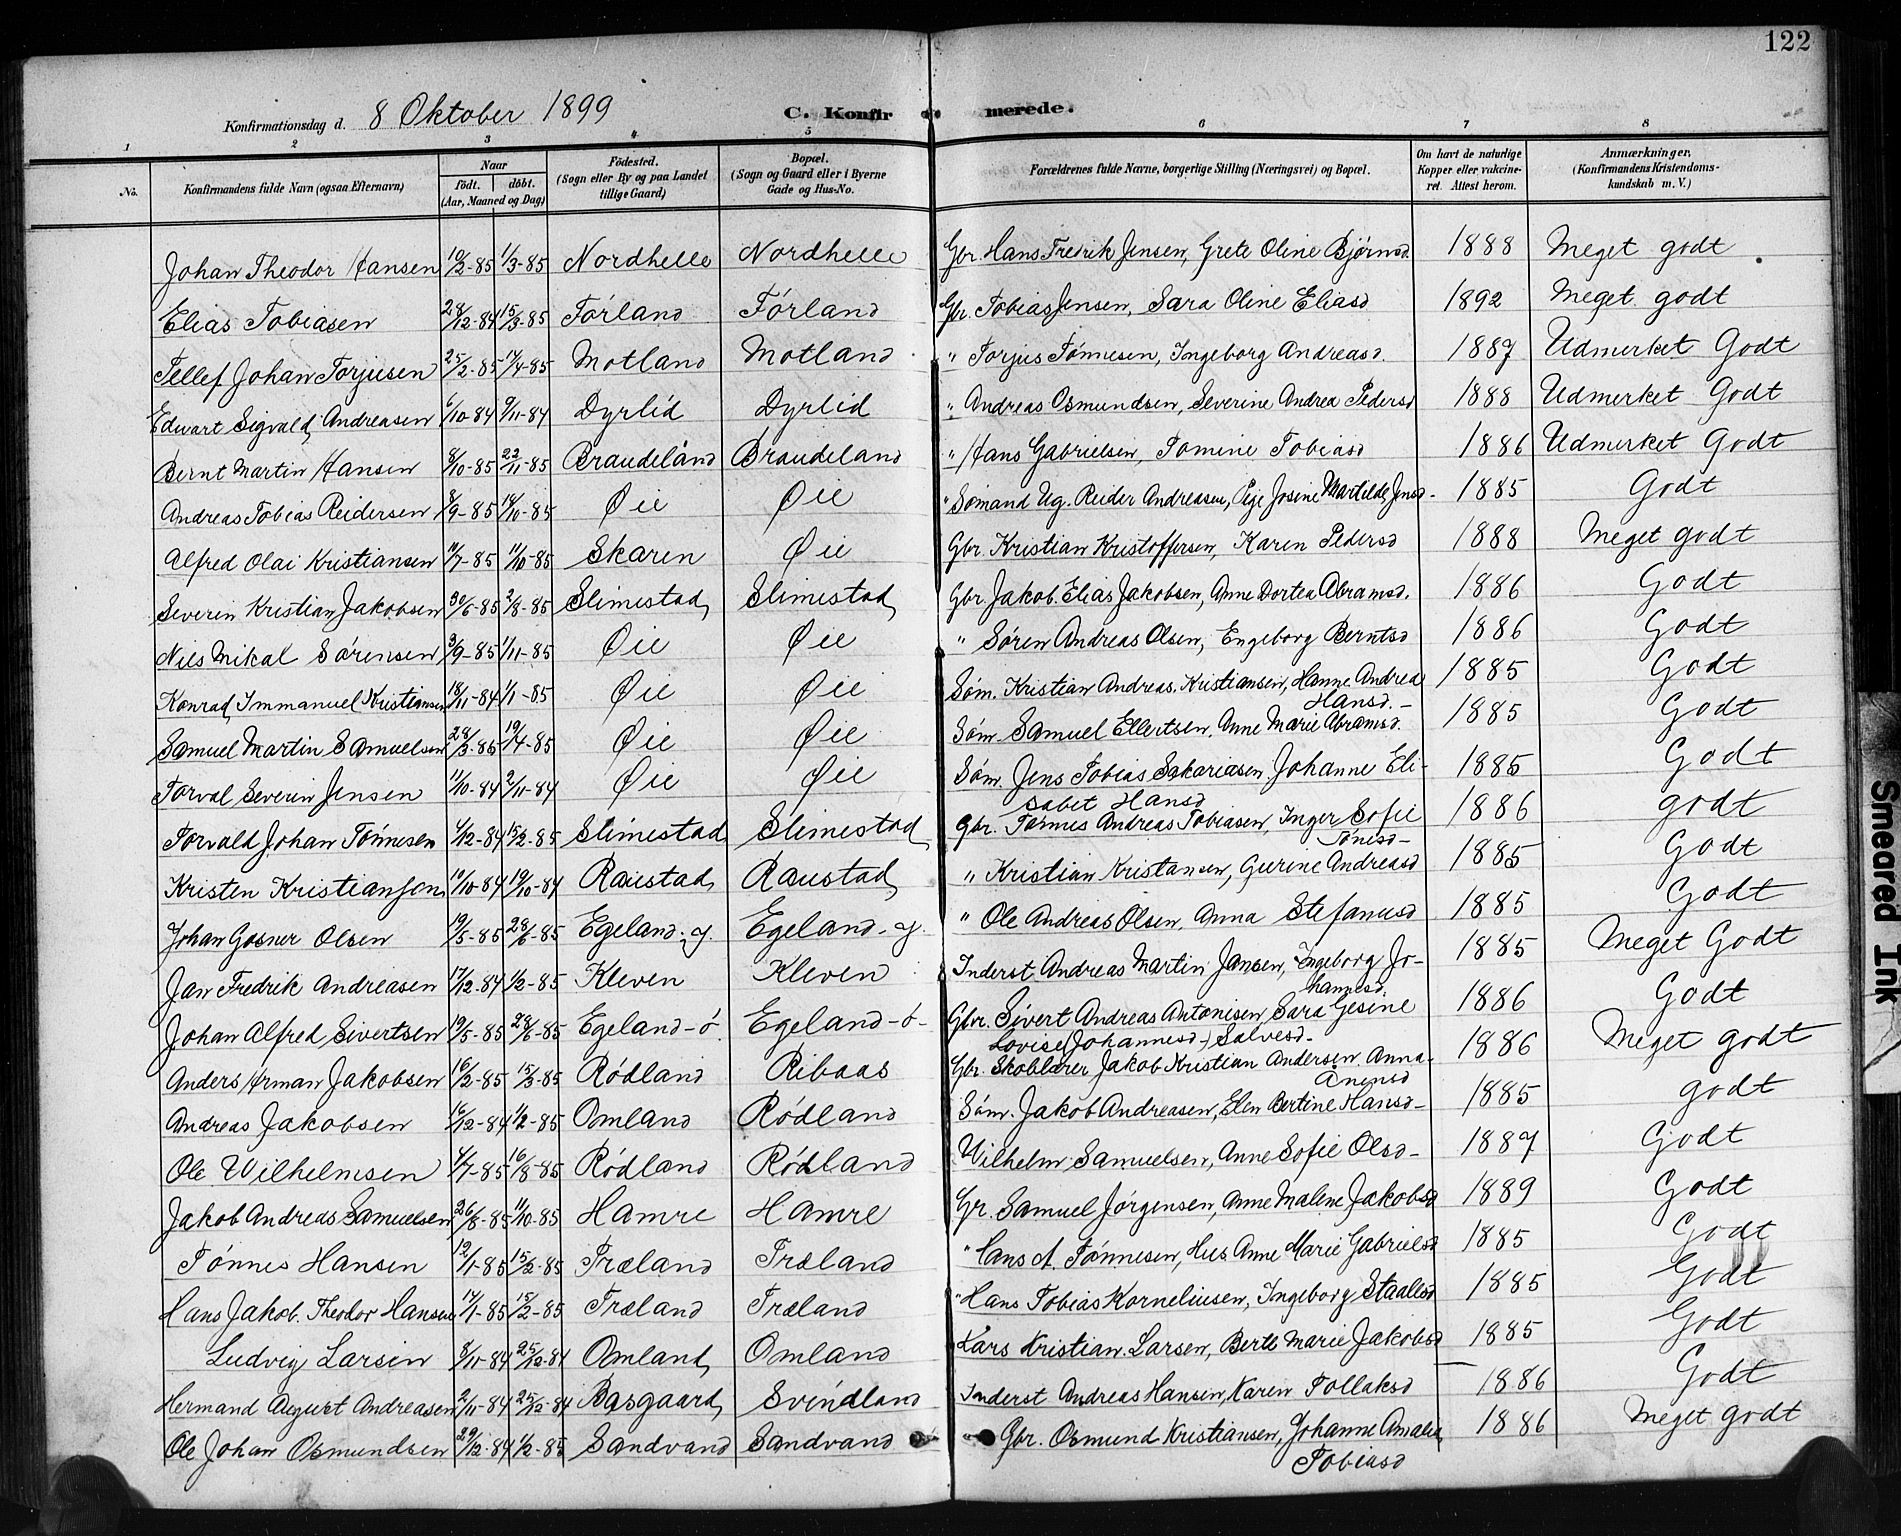 122
Konfirmationsdag d. 8 Oktober 1899 C. Konfirmerede.
1 2 3 4 5 6 7 8
No. Konfirmandens fulde Navn (ogsaa Efternavn) Naar født. døbt. (Aar, Maaned og Dag) Födested. (Sogn eller By og paa Landet tillige Gaard) Bopæl. (Sogn og Gaard eller i Byerne Gade og Hus-No. Forældrenes fulde Navne, borgerlige Stilling (Næringsvei) og Bopæl. Om havt de naturlige Kopper eller vakcineret. Attest herom. Anmærkninger. (Konfirmandens Kristendomskundskab m. V.)
Johan Theodor Hansen 10/2-85 1/3-85 Nordhelle Nordhelle Gbr. Hans Fredrik Jensen, Grete Oline Bjørnsd 1888 Meget godt
Elias Tobiasen 28/12-84 15/3-85 Førland Førland Gbr. Tobias Jensen, Sara Oline Eliasd 1892 Meget godt
Tellef Johan Torjusen 25/2-85 17/4-85 Motland Motland " Torjus Tønnesen, Ingeborg Andreasd. 1887 Udmerket Godt
Edvart Sigvald Andreasen 6/10-84 9/11-84 Dyrlid Dyrlid " Andreas Osmundsen, Severine Andrea Pedersd 1888 Udmerket Godt
Bernt Martin Hansen 8/10-85 22/11-85 Braudeland Braudeland " Hans Gabrielsen, Tomine Tobiasd 1886 Udmerket Godt
Andreas Tobias Reidersen 8/9-85 18/10-85 Øie Øie " Sømand Ug. Reider Andreasen, Pige Josine Martilde Jensd- 1885 Godt
Alfred Olai Kristiansen 11/7-85 11/10-85 Skaren Øie Gbr. Kristian Kristoffersen, Karen Pedersd 1888 Meget godt
Severin Kristian Jakobsen 30/6-85 2/8-85 Slimestad Slimestad Gbr. Jakob Elias Jakobsen, Anne Dortea Abramsd. 1886 Godt
Nils Mikal Sørensen 3/9-85 1/11-85 Øie Øie " Søren Andreas Olsen, Engeborg Berntsd 1886 Godt
Konrad Immanuel Kristiansen 18/11-84 1/1-85 Øie Øie Søm. Kristian Andreas Kristiansen, Hanne Andrea Hansd.- 1885 Godt
Samuel Martin Samuelsen 28/3-85 19/4-85 Øie Øie Søm. Samuel Ellertsen, Anne Marie Abramsd. 1885 Godt
Torval Severin Jensen 11/10-84 2/11-84 Øie Øie Søm. Jens Tobias Sakariasen, Johanne Elisabet Hansd 1885 Godt
Torvald Johan Tønnesen 4/12-84 15/2-85 Slimestad Slimestad Gbr. Tønnes Andreas Tobiasen, Inger Sofie Tønesd- 1886 godt
Kristen Kristianson 10/10-84 19/10-84 Raustad Raustad " Kristian Kristansen, Gurine Andreasd 1885 Godt
Johan Gosner Olsen 19/5-85 28/6-85 Egeland-y. Egeland-y. " Ole Andreas Olsen, Anna Stefanusd 1885 Godt
Jan Fredrik Andreasen 17/12-84 1/2-85 Kleven Kleven Inderst Andreas Martin Jansen, Ingeborg Johannesd. 1885 Meget Godt
Johan Alfred Sivertsen 19/5-85 28/6-85 Egeland-ø. Egeland-ø- Gbr. Sivert Andreas Antonisen, Sara Gesine Lovise (Johannesd-) Salvesd- 1886 Godt
Anders Herman Jakobsen 16/2-85 15/3-85 Rødland Ribaas Gbr. Skolelærer Jakob Kristian Andersen, Anna Anensd 1886 Meget godt
Andreas Jakobsen 16/12-84 1/2-85 Omland Rødland Søm. Jakob Andreasen, Elen Bertine Hansd- 1885 godt
Ole Wilhelmsen 4/7-85 16/8-85 Rødland Rødland Wilhelm Samuelsen, Anne Sofie Olsd- 1887 Godt
Jakob Andreas Samuelsen 26/8-85 11/10-85 Hamre Hamre Gr. Samuel Jørgensen, Anne Malene Jakobsd 1889 Godt
Tønnes Hansen 12/1-85 15/2-85 Træland Træland " Hans A. Tønnesen, Hus. Anne Marie Gabrielsd 1885 Godt
Hans Jakob Theodor Hansen 17/1-85 15/2-85 Træland Træland " Hans Tobias Korneliusen, Ingeborg Staalesd 1885 Godt
Ludvig Larsen 8/11-84 25/12-84 Omland Omland Lars Kristian Larsen, Berte Marie Jakobsd 1885 Godt
Hermand August Andreasen 2/11-84 25/12-84 Aasgaard Svindland Inderst Andreas Hansen, Karen Tollaksd 1886 Godt
Ole Johan Osmundsen 29/12-84 1/2-85 Sandvand Sandvand Gbr. Osmund Kristiansen, Johanne Amalia Tobiasd 1886 Meget godt
Smeared Ink